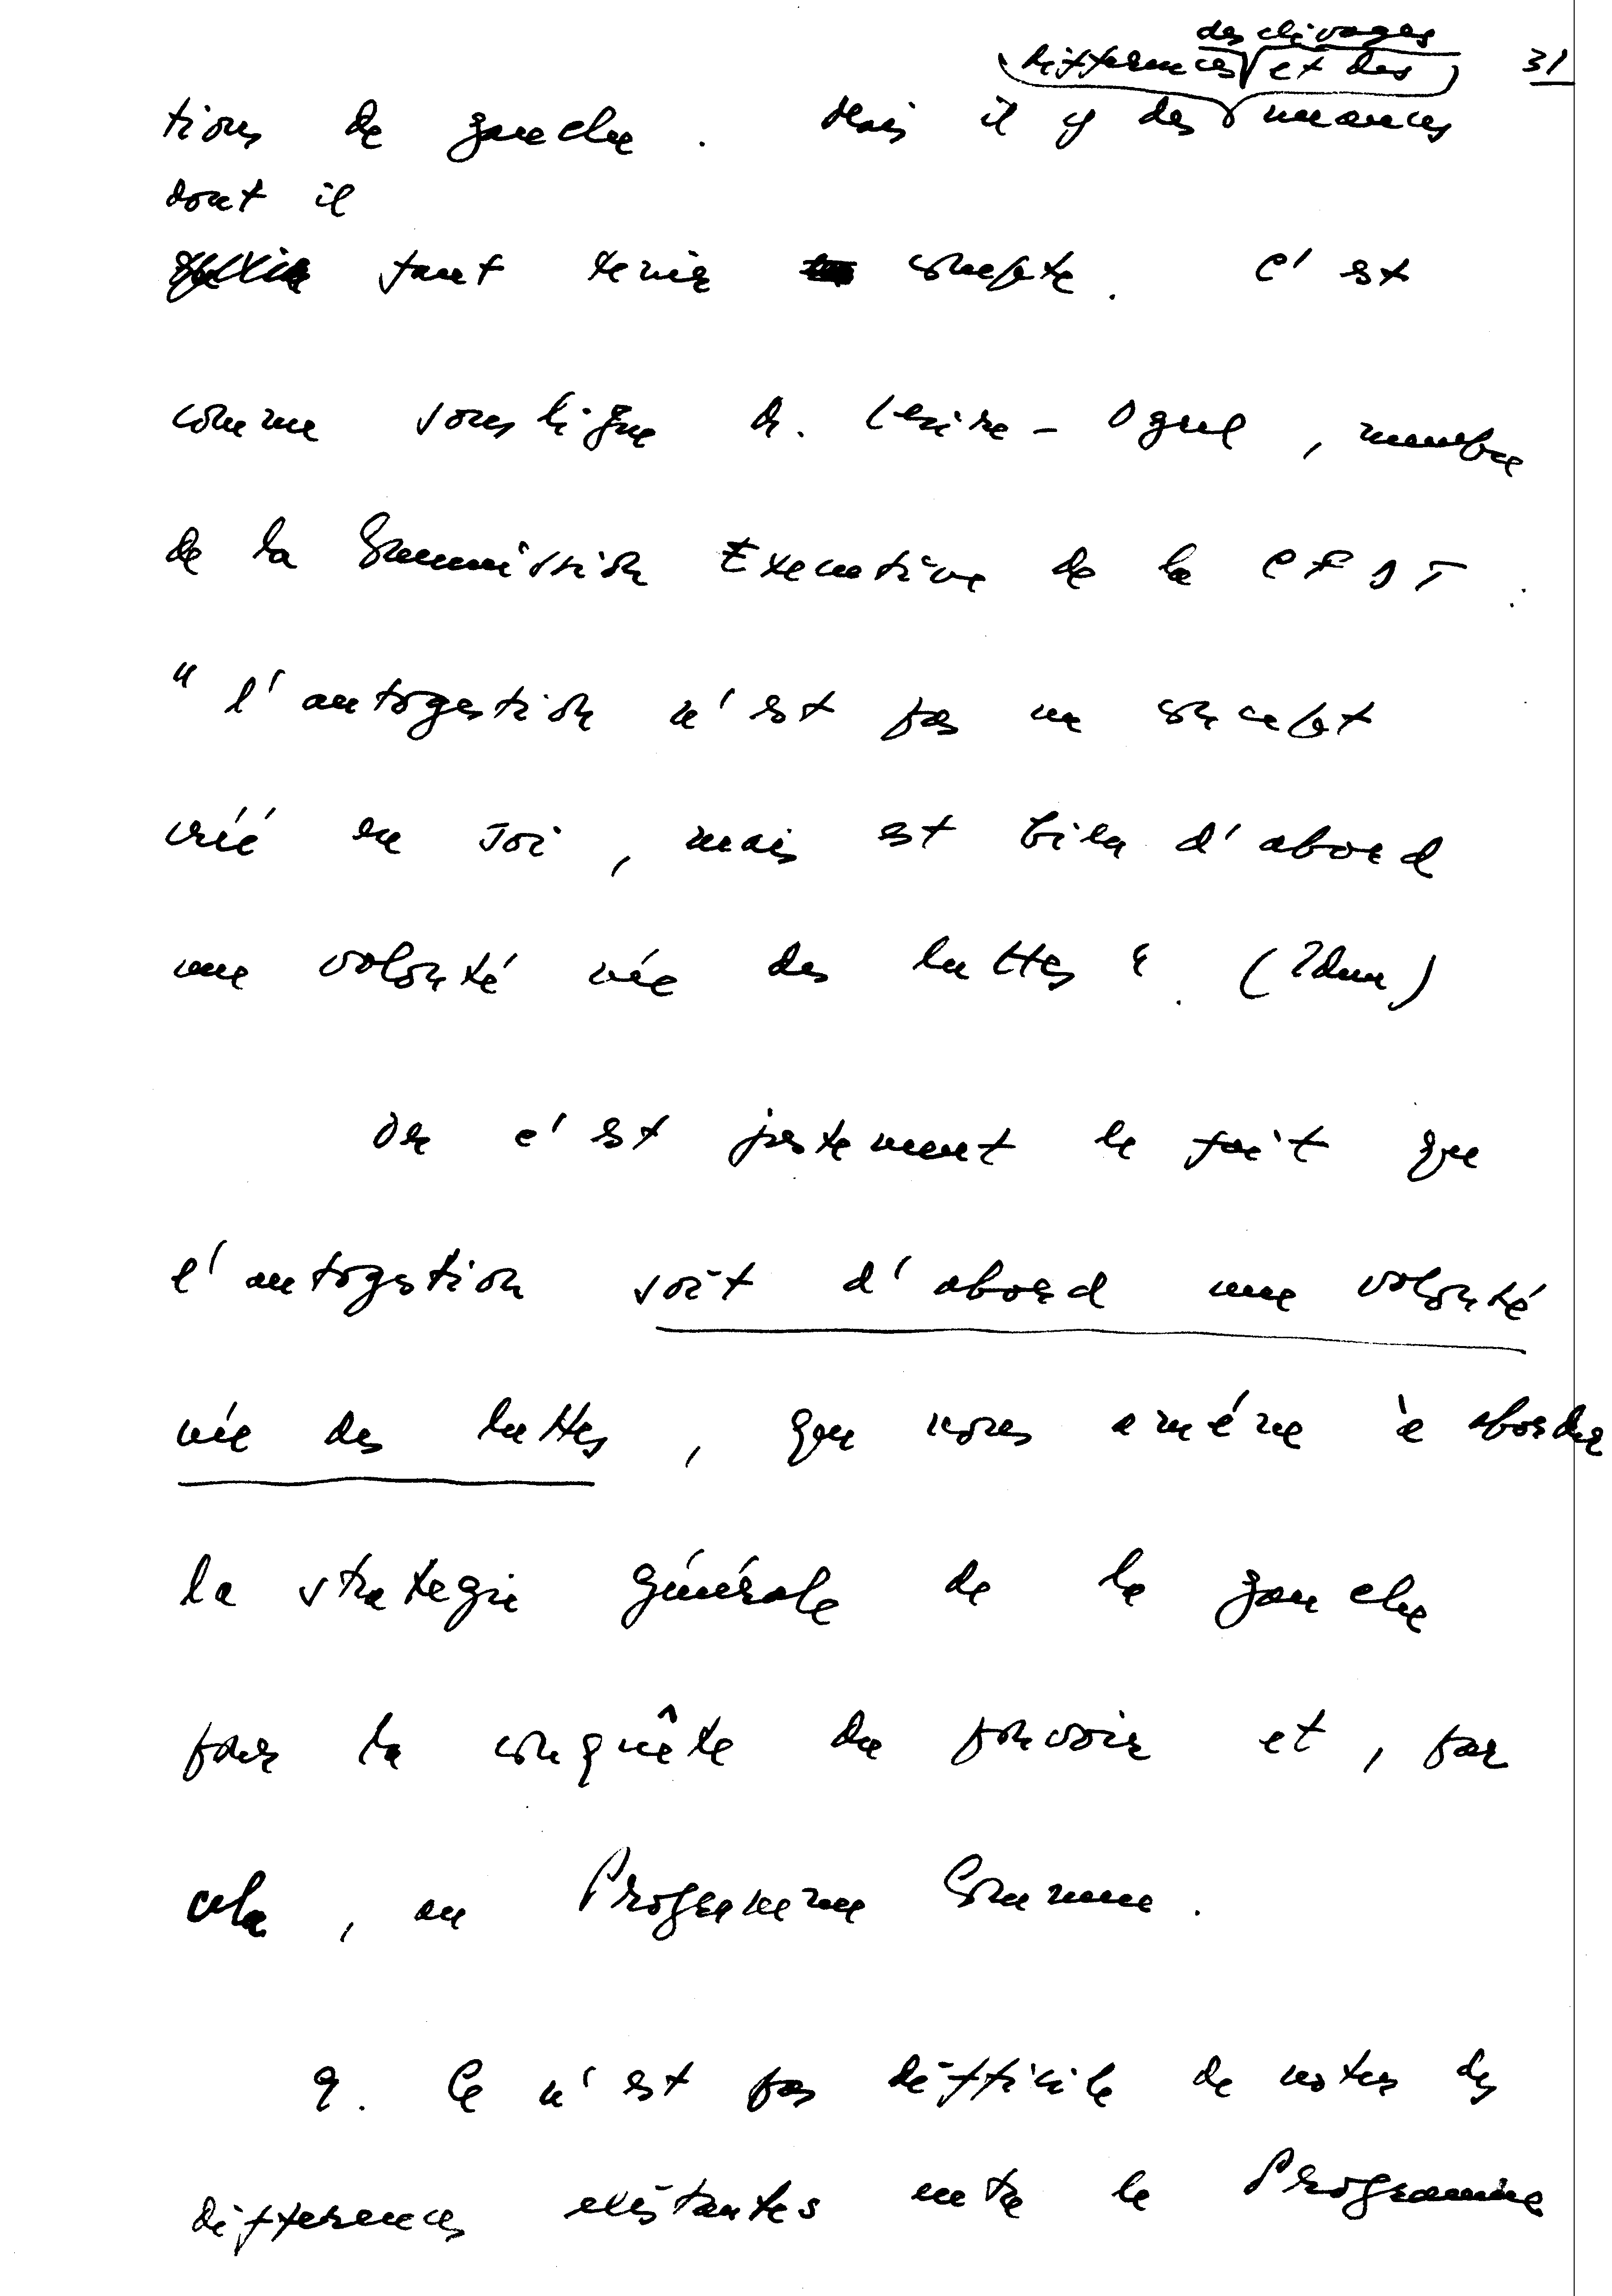 des clivages
différences et des 31
tions de gauche. Mais il y des nuances
dont il
faut tenir compte. C'est
comme souligne D. Lerire-Ogrel, membre
de la Commission Executive de la CFDT :
"l'autogestion n'est pas un concept
créé en soi, mais est bien d'abord
une volonté née des luttes". (Idem)
Or c'est justement le fait que
l'autogestion soit d'abord une volonté
née des luttes, que nous améne à aborder
la strategie générale de la gauche
pour la conquête du pouvoir et, par
cela, au Programme Commun.
9. Ce n'est pas difficile de noter des
differences existantes entre le Programme